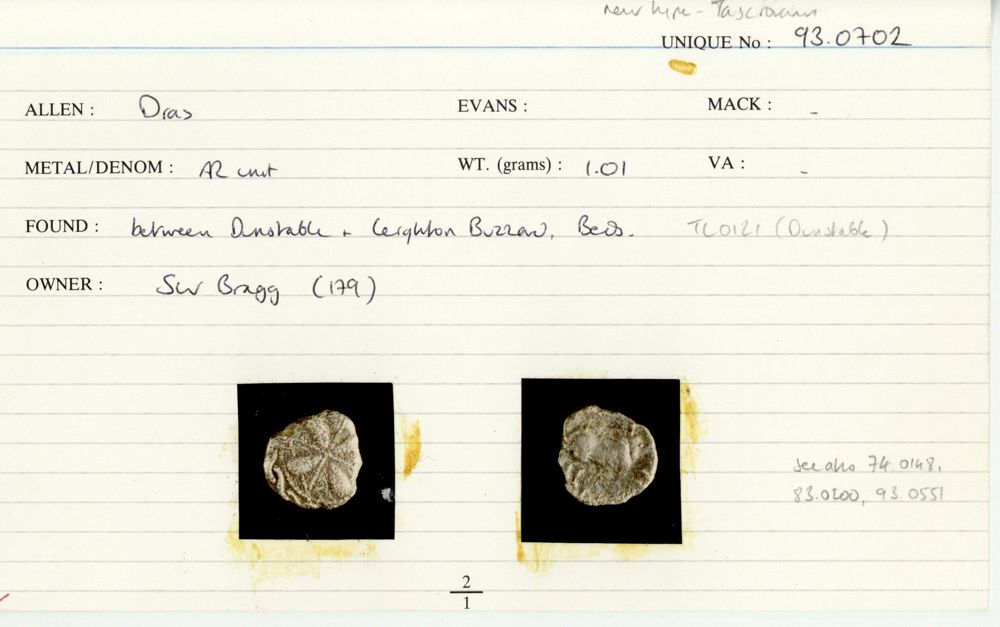 new type - Tasciovanus
UNIQUE No : 93.0702
ALLEN : Dras EVANS : MACK : -
METAL/DENOM : AR unit WT. (grams) : 1.01 VA : -
FOUND : between Dunstable + Leighton Buzzard, Beds. TL0121 (Dunstable)
OWNER : SW Bragg (179)
see also 74.0148,
83.0200, 93.0551
2
1